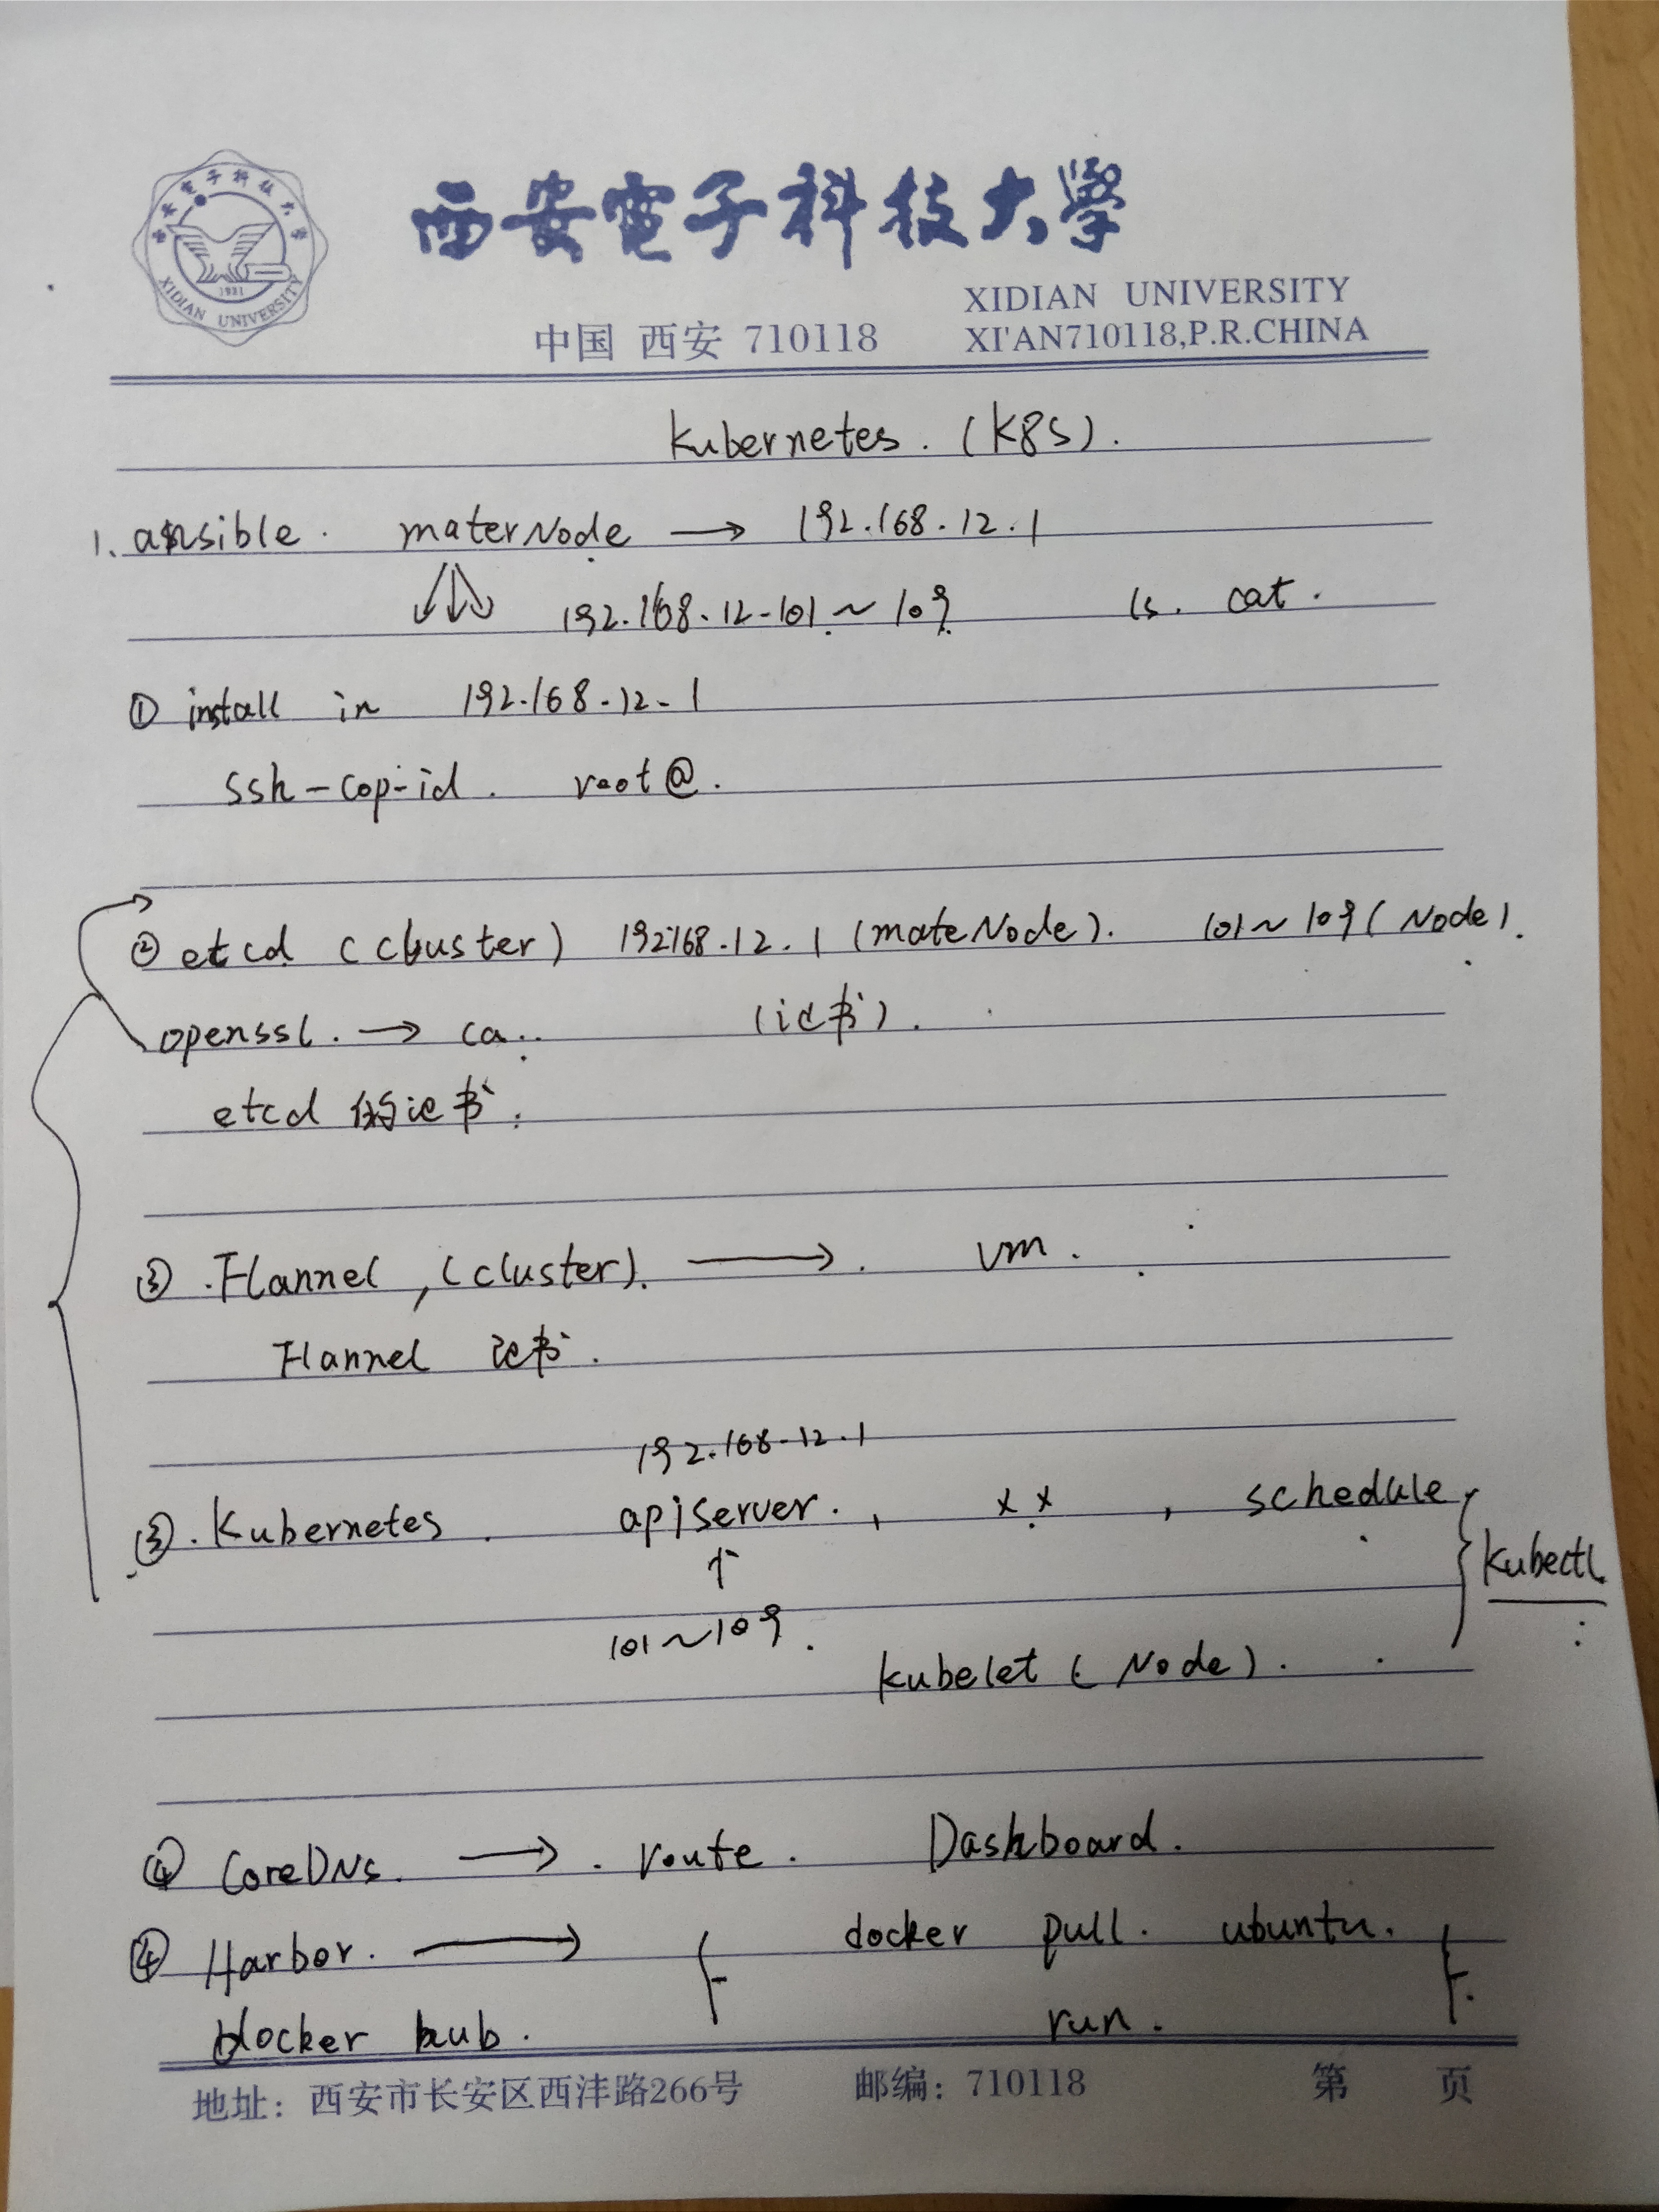 西安電子科技大學
XIDIAN UNIVERSITY
1931
XIDIAN UNIVERSITY
中国 西安 710118 XI'AN710118,P.R.CHINA
Kubernetes. (K8S).
1. ansible. materNode → 192.168.12.1
192.168.12-101 ~ 109 ls. cat.
① install in 192.168.12-1
ssh-cop-id. root@.
② etcd (cluster) 192168.12.1 (mateNode). 101~109 (Node).
openssl. → ca.. (证书).
etcd 的证书.
③ .Flannel, (cluster). → . vm.
Flannel 证书.
192.168-12.1
③. Kubernetes. apiserver. , x x , schedule
↑
kubectl
101~109.
kubelet (Node).
④ CoreDNS. → . route. Dashboard.
④ Harbor. → docker pull. ubuntu.
docker hub. run.
地址：西安市长安区西沣路266号 邮编：710118 第 页